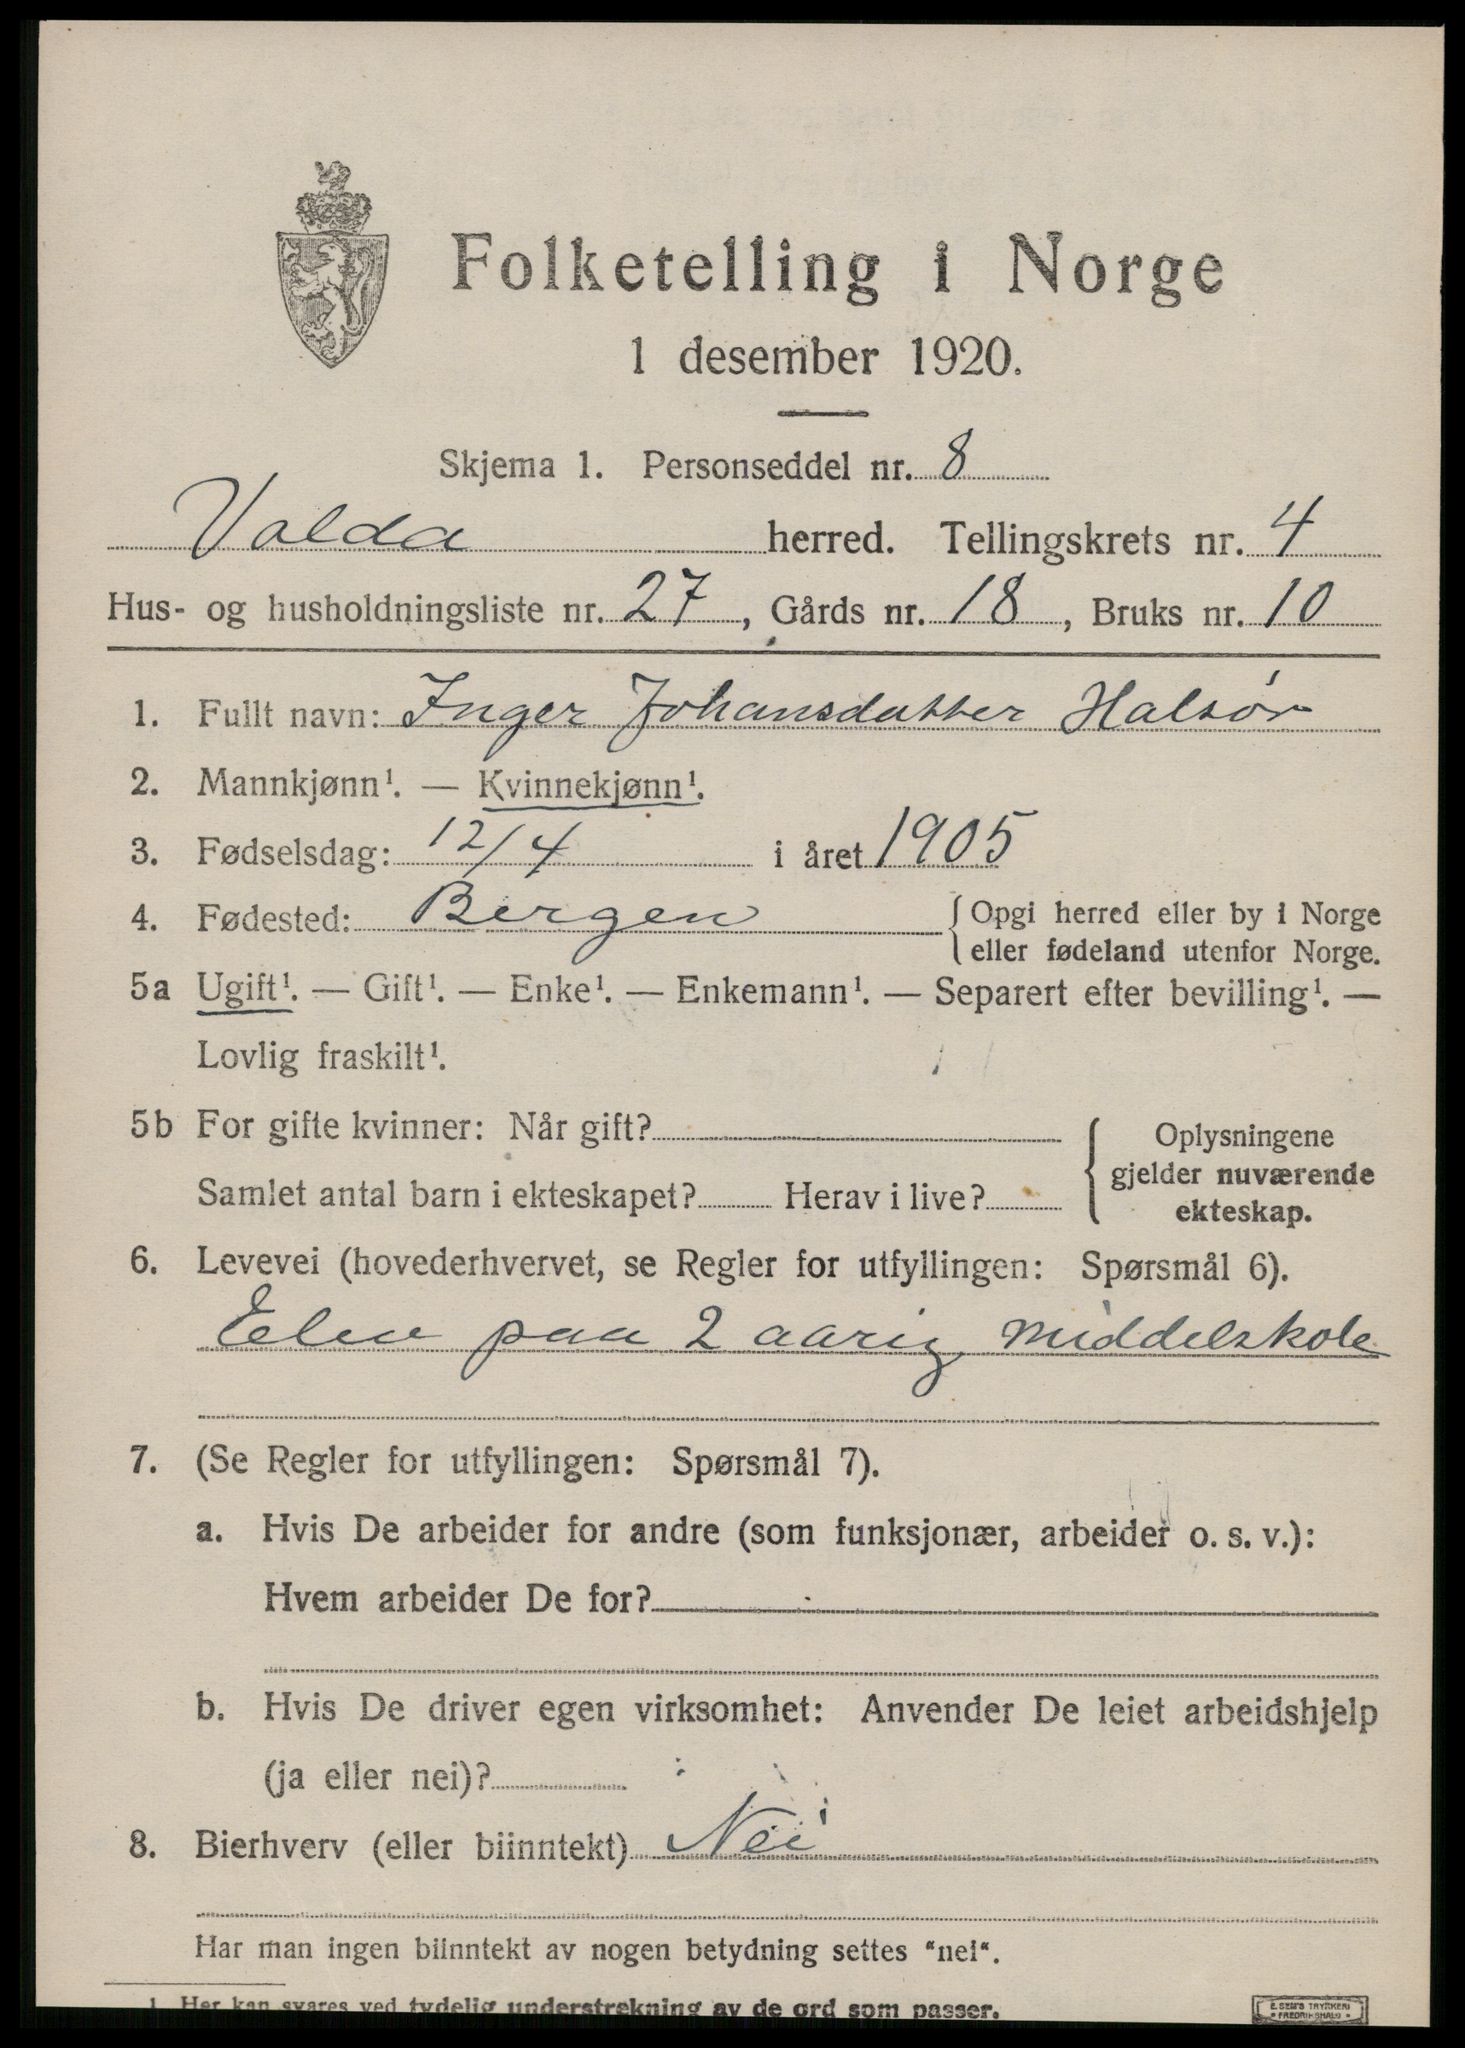 Folketelling i Norge
1 desember 1920.
Skjema 1. Personseddel nr. 8
Volda herred. Tellingskrets nr. 4
Hus- og husholdningsliste nr. 27, Gårds nr. 18, Bruks nr. 10
1. Fullt navn: Inger Johansdatter Halsør
2. Mannkjønn¹. — Kvinnekjønn¹.
3. Fødselsdag: 12/4 i året 1905
4. Fødested: Bergen { Opgi herred eller by i Norge
eller fødeland utenfor Norge.
5a Ugift¹. — Gift¹. — Enke¹. — Enkemann¹. — Separert efter bevilling¹. —
Lovlig fraskilt¹.
5b For gifte kvinner: Når gift?
Samlet antal barn i ekteskapet? Herav i live?
Oplysningene
gjelder nuværende
ekteskap.
6. Levevei (hovederhvervet, se Regler for utfyllingen: Spørsmål 6).
Elev paa 2 aarig middelskole
7. (Se Regler for utfyllingen: Spørsmål 7).
a. Hvis De arbeider for andre (som funksjonær, arbeider o. s. v.):
Hvem arbeider De for?
b. Hvis De driver egen virksomhet: Anvender De leiet arbeidshjelp
(ja eller nei)?
8. Bierhverv (eller biinntekt) Nei
Har man ingen biinntekt av nogen betydning settes "nei".
1. Her kan svares ved tydelig understrekning av de ord som passer.
E. SEM'S TRYKKERI
FREDRIKSHALD